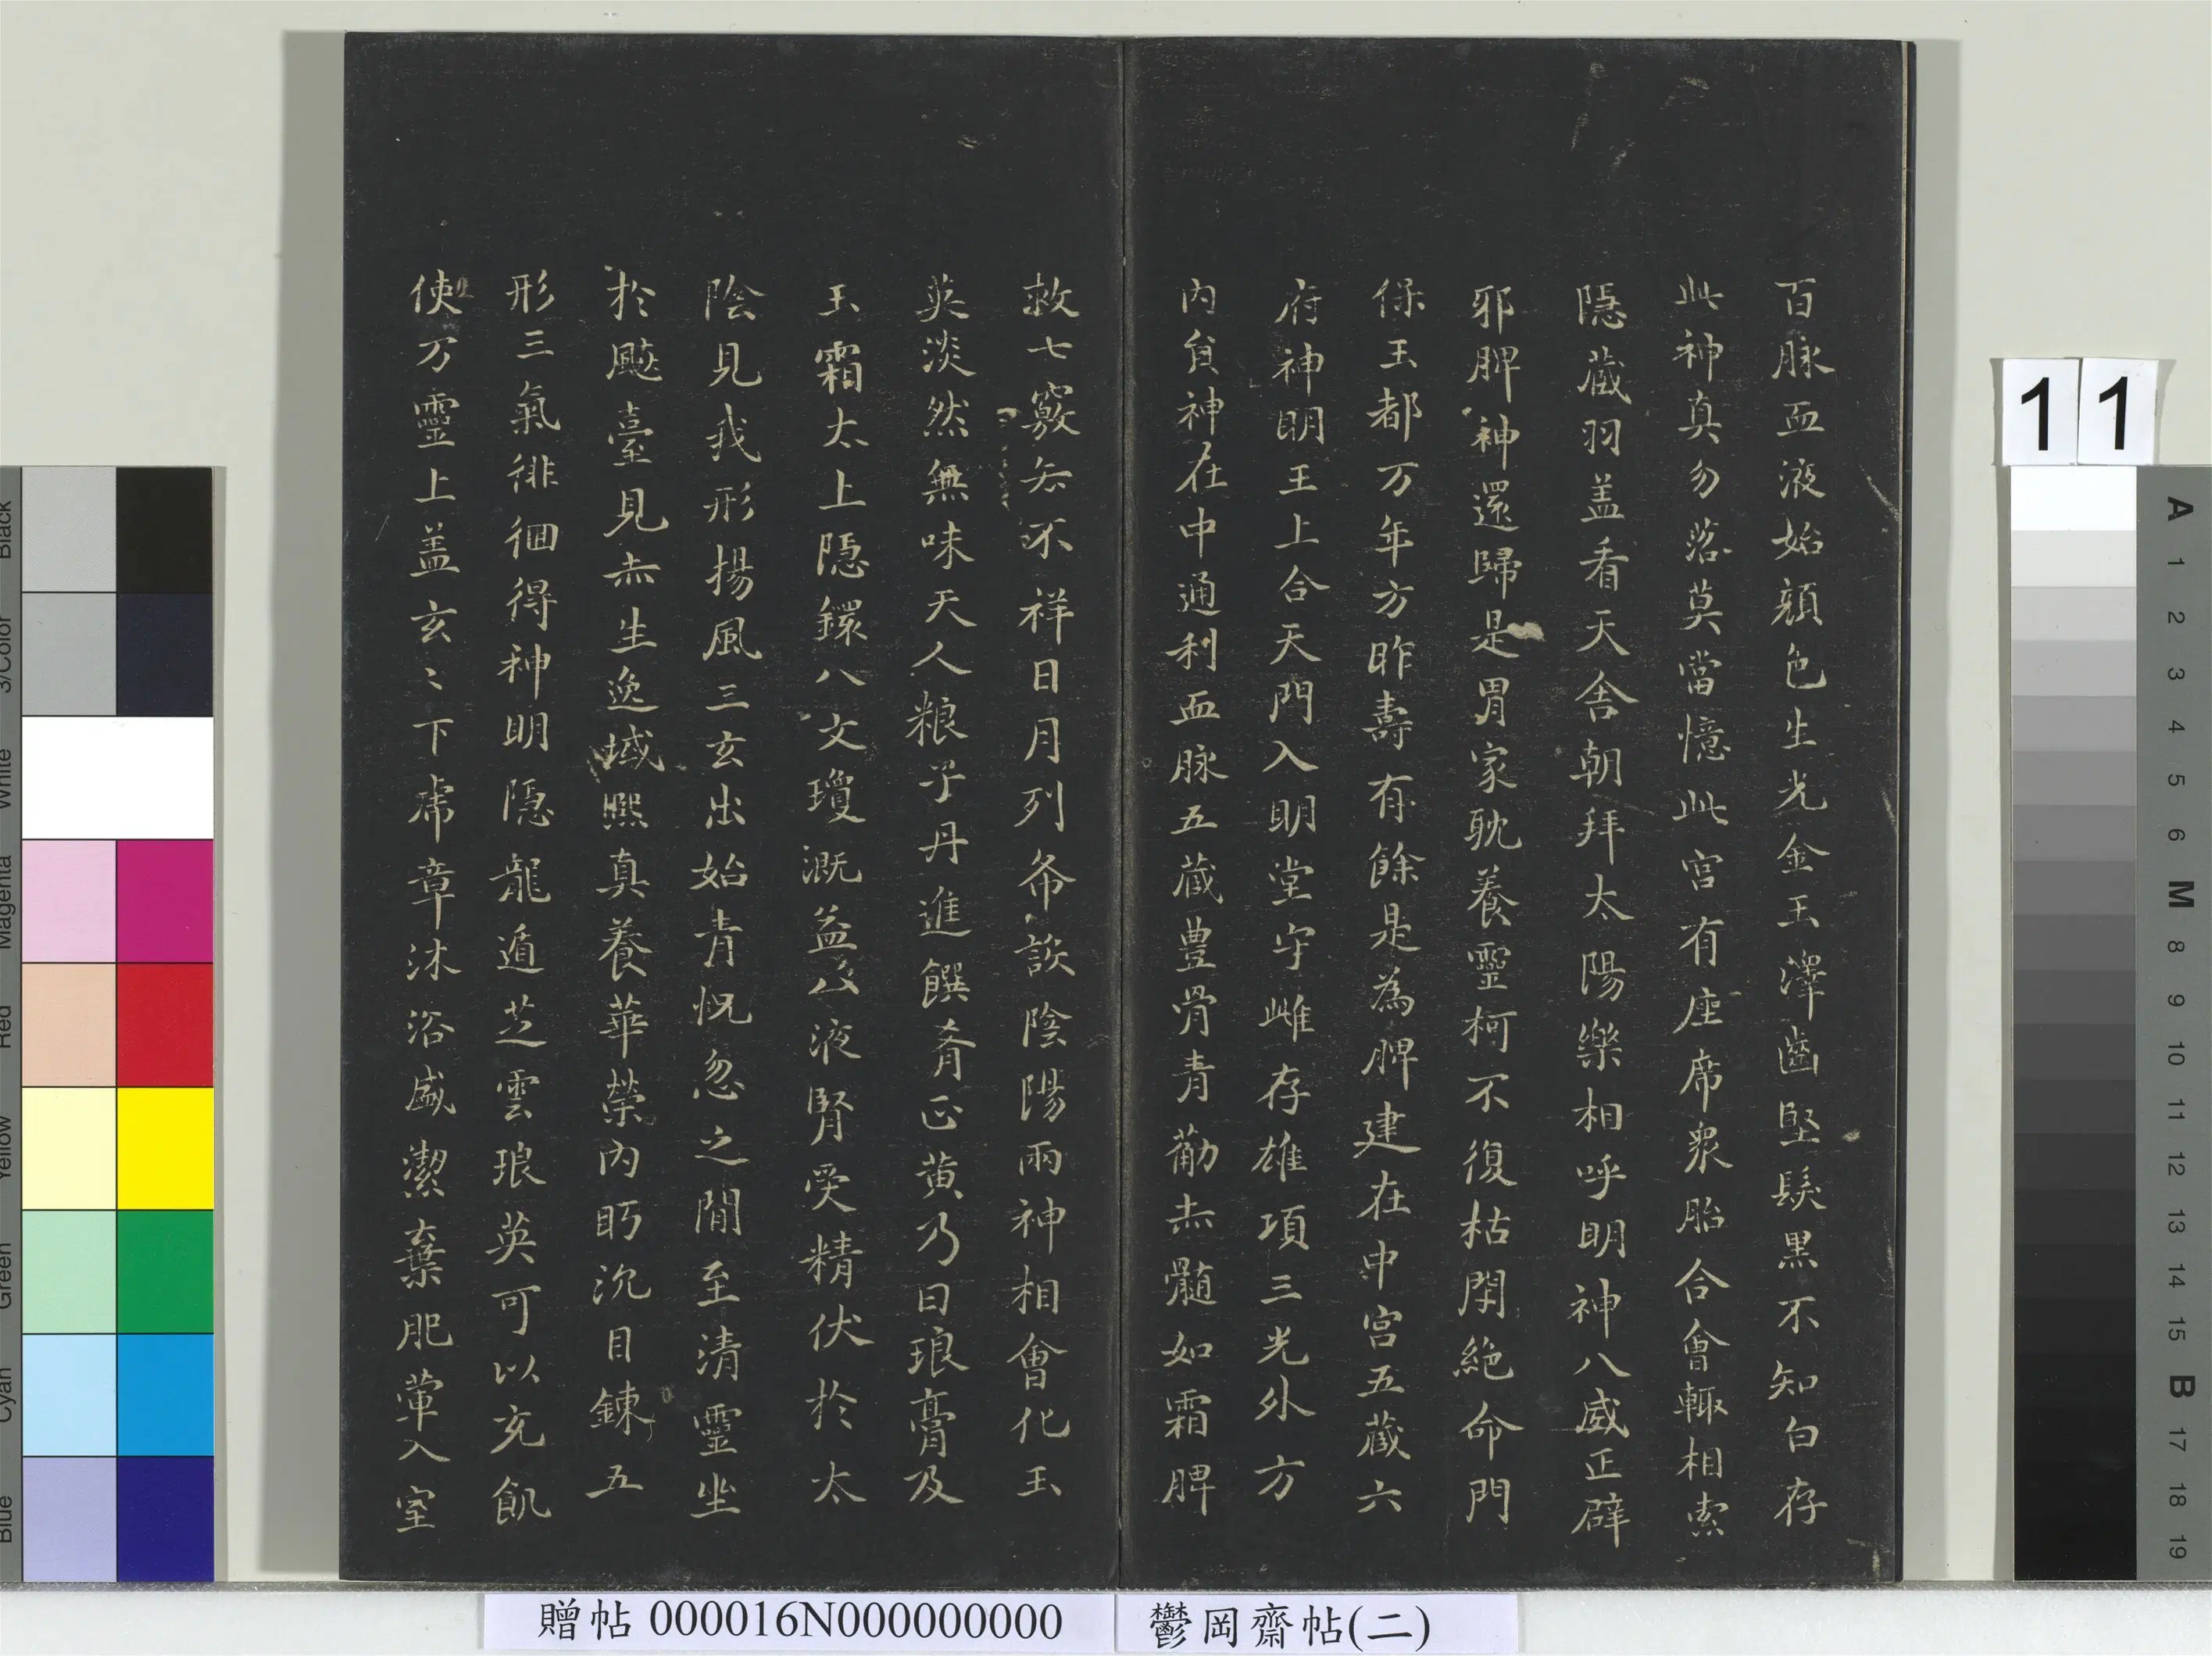 百脉血液始顔色生光金玉澤齒堅髮黑不知白存
此神真勿落莫當憶此宮有座席衆胎合會輙相索
隱藏羽盖看天舍朝拜太陽樂相呼明神八威正辟
邪脾神還歸是胃家耽養靈柯不復枯閑絶命門
保玉都万年方昨壽有餘是為脾建在中宮五藏六
府神明王上合天門入明堂守雌存雄項三光外方
内負神在中通利血脉五藏豊骨青勸赤髓如霜脾
救七竅去不祥日月列布設陰陽兩神相會化玉
英淡然無味天人粮子丹進饌肴正黄乃曰琅膏及
玉霜太上隱鐶八文瓊溉益八液腎受精伏於太
陰見我形揚風三玄出始青怳忽之間至清靈坐
於飈臺見赤生逸域熙真養華榮内盻沉目錬五
形三氣徘徊得神明隱龍遁芝雲琅英可以充飢
使万靈上盖玄〻下虎章沐浴盛潔棄肥葷入室
贈帖 000016N000000000
鬱岡齋帖(二)
11
Black
3/Color
White
Magenta
Red
Yellow
Green
Cyan
Blue
A
1
2
3
4
5
6
M
8
9
10
11
12
13
14
15
B
17
18
19